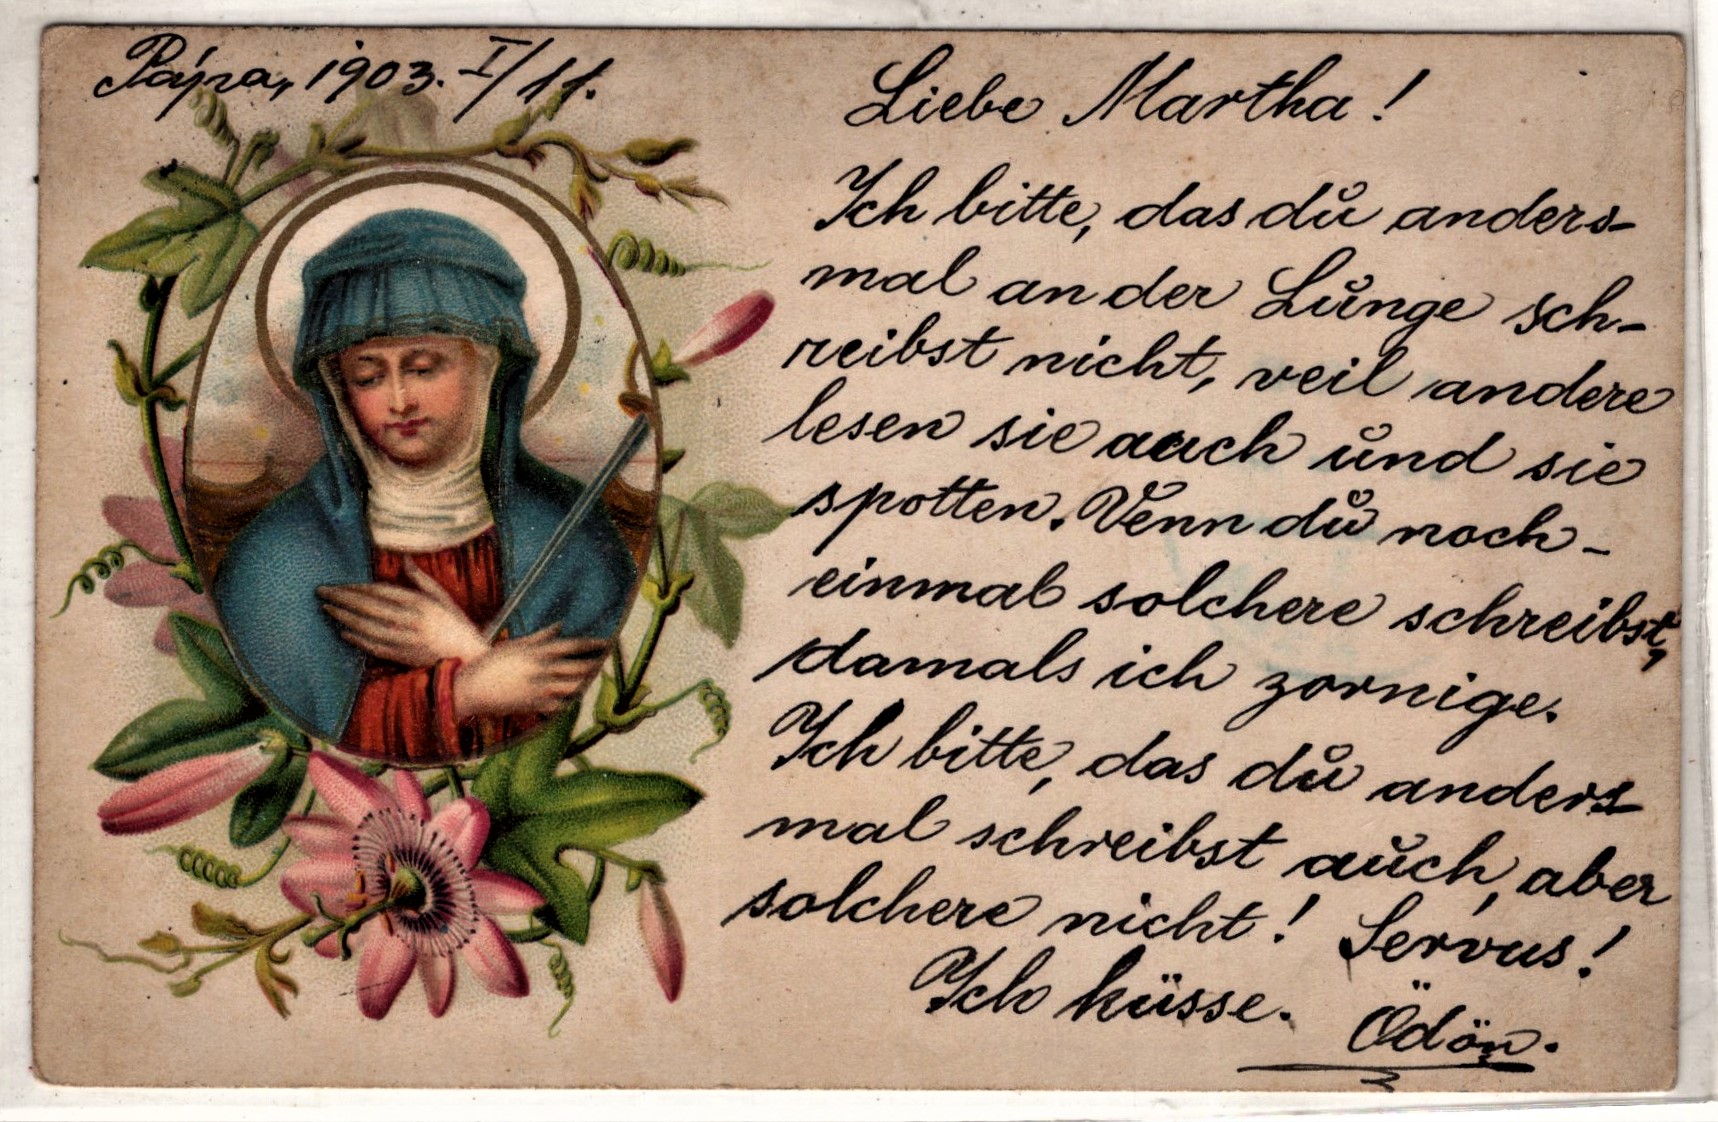 Pápa, 1903. I/11.
Liebe Martha!
Ich bitte, das dŭ anders-
mal an der Lŭnge sch-
reibst nicht, veil andere
lesen sie auch ŭnd sie
spotten. Venn dŭ noch-
einmal solchere schreibst,
damals ich zornige.
Ich bitte, das dŭ anders-
mal schreibst aŭch, aber
solchere nicht! Servus!
Ich küsse. Ödön.